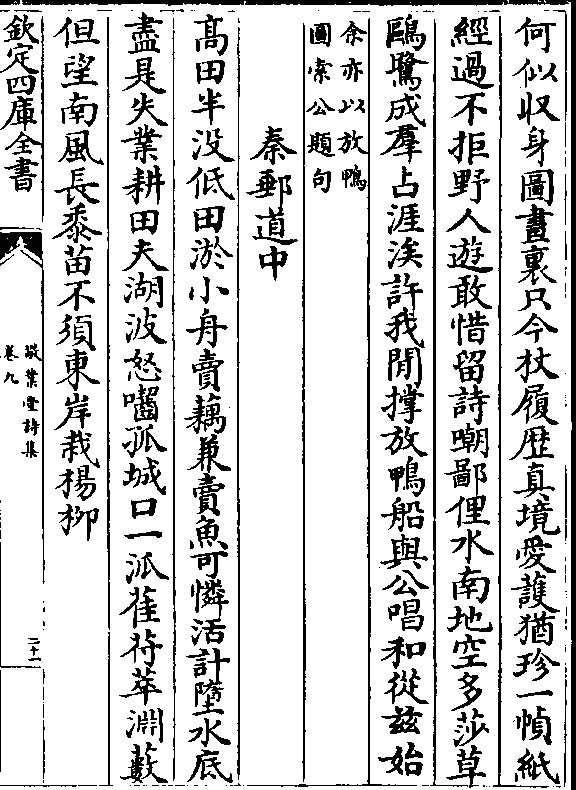 何似収身圖畫裏只今杖履歴真境愛護猶珍一幀紙
經過不拒野人遊敢惜留詩嘲鄙俚水南地空多莎草
鷗鷺成羣占涯涘許我閒撑放鴨船與公唱和從兹始
余亦以放鴨
圖索公題句
秦郵道中
髙田半没低田淤小舟賣藕兼賣魚可憐活計墮水底
盡是失業耕田夫湖波怒囓孤城口一派萑苻萃淵藪
但望南風長黍苗不須東岸栽楊栁
欽定四庫全書
敬業堂詩集
卷九
二十一